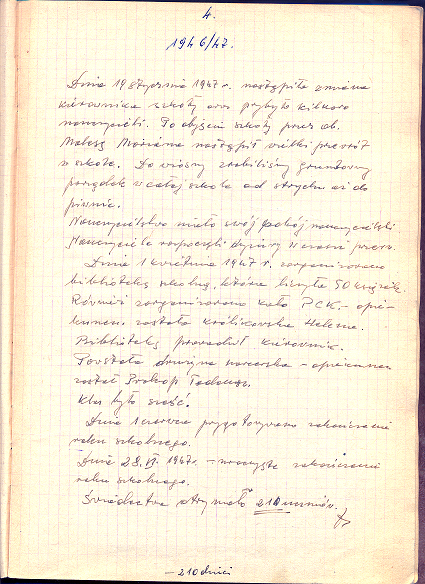 4.
1946/47.
Dnia 19 stycznia 1947 r. nastąpiła zmiana
kierownika szkoły oraz przybyło kilkoro
nauczycieli. Po objęciu szkoły przez ob.
Małeszę Mariana nastąpił wielki przewrót
w szkole. Do wiosny zrobiliśmy gruntowny
porządek w całej szkole od strychu aż do
piwnic.
Nauczycielstwo miało swój pokój nauczycielski
Nauczyciele rozpoczęli dyżury w czasie przerw.
Dnia 1 kwietnia 1947 r. zorganizowano
bibliotekę szkolną, która liczyła 50 książek.
Również zorganizowano koło PCK. - opie-
kunem została Królikowska Helena.
Bibliotekę prowadził kierownik.
Powstała drużyna harcerska - opiekunem
został Prokop Tadeusz.
Klas było sześć.
Dnia 1 czerwca przygotowano zakończenie
roku szkolnego.
Dnia 28. VI. 1947r. - uroczyste zakończenie
roku szkolnego.
Świadectwa otrzymało 210 uczniów.
- 210 dzieci